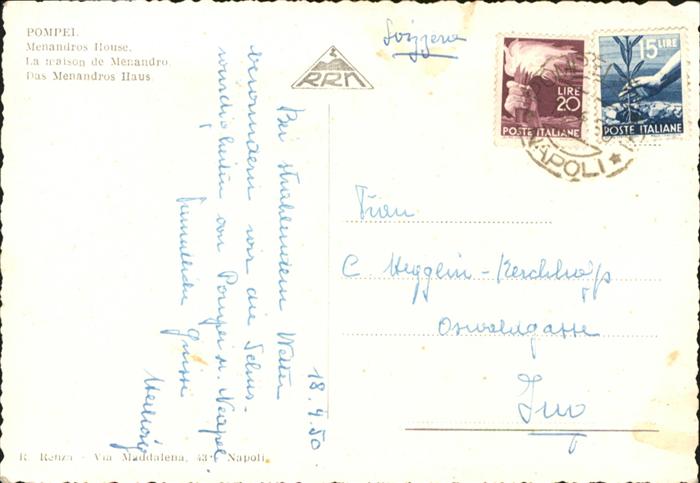 POMPEI.
Menandros House.
La maison de Menandro.
Das Menandros Haus.
Svizzera
RRN
LIRE
20
POSTE ITALIANE
15 LIRE
POSTE ITALIANE
NAPOLI
18.4.50
Bei strahlendem Wetter
bewundern wir die Sehens-
würdigkeiten von Pompei u. Neapel.
Freundliche Grüsse
Hedwig
Frau
C Heggin - Kerckhoffs
Oswaldgasse
Zug
R. Renza - Via Maddalena, 43 - Napoli